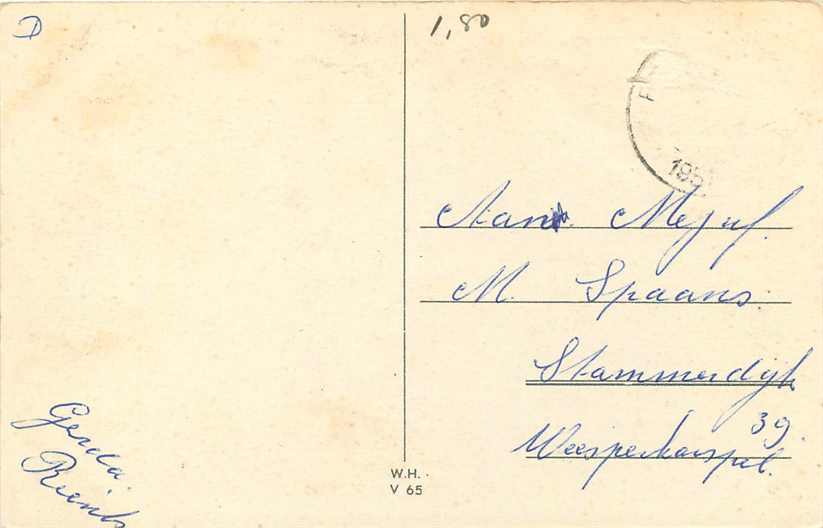 1,80
195
Aan Mejuf.
M. Spaans
Stammerdijk
39.
Weesperkarspel.
Gerda.
W.H.
V 65